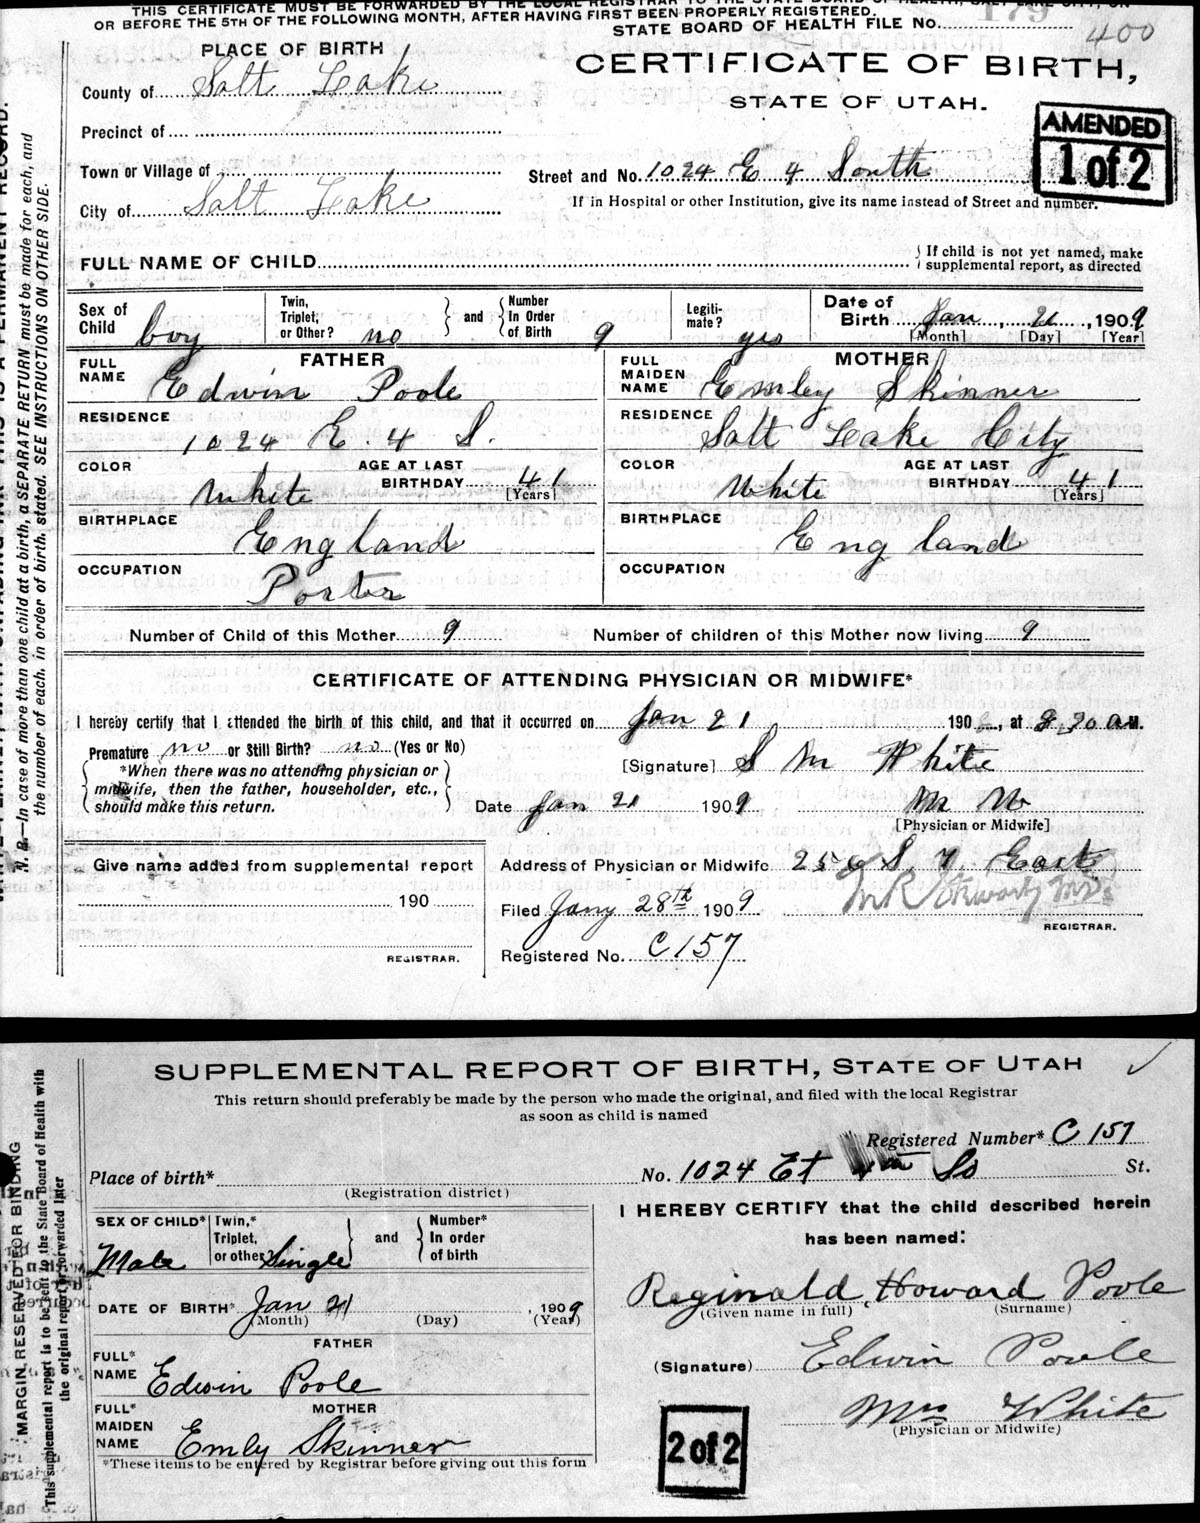 THIS CERTIFICATE MUST BE FORWARDED BY THE LOCAL REGISTRAR TO THE STATE BOARD OF HEALTH, SALT LAKE CITY, ON
OR BEFORE THE 5TH OF THE FOLLOWING MONTH, AFTER HAVING FIRST BEEN PROPERLY REGISTERED.
STATE BOARD OF HEALTH FILE No. 179
400
PLACE OF BIRTH
CERTIFICATE OF BIRTH,
STATE OF UTAH.
AMENDED
1 of 2
County of Salt Lake
Precinct of
Town or Village of
Street and No. 1024 E 4 South
City of Salt Lake
If in Hospital or other Institution, give its name instead of Street and number.
FULL NAME OF CHILD
If child is not yet named, make
supplemental report, as directed
Sex of Child boy
Twin, Triplet, or Other? no
and
Number In Order of Birth 9
Legiti-mate? yes
Date of Birth Jan, 21, 1909
[Month] [Day] [Year]
FATHER
FULL NAME Edwin Poole
MOTHER
FULL MAIDEN NAME Emley Skinner
RESIDENCE 1024 E. 4 S.
RESIDENCE Salt Leake City
COLOR White
AGE AT LAST BIRTHDAY 41
[Years]
COLOR White
AGE AT LAST BIRTHDAY 41
[Years]
BIRTHPLACE England
BIRTHPLACE England
OCCUPATION Porter
OCCUPATION
Number of Child of this Mother 9
Number of children of this Mother now living 9
CERTIFICATE OF ATTENDING PHYSICIAN OR MIDWIFE*
I hereby certify that I attended the birth of this child, and that it occurred on Jan 21 190 , at 8 30 a M.
Premature no or Still Birth? no (Yes or No)
*When there was no attending physician or
midwife, then the father, householder, etc.,
should make this return.
[Signature] S M White
Date Jan 21 1909
M W
[Physician or Midwife]
Give name added from supplemental report
190
REGISTRAR.
Address of Physician or Midwife 256 S 7 East
Filed Jany 28th 1909
REGISTRAR.
Registered No. C157
N. B.—In case of more than one child at a birth, a SEPARATE RETURN must be made for each, and
the number of each, in order of birth, stated. SEE INSTRUCTIONS ON OTHER SIDE.
SUPPLEMENTAL REPORT OF BIRTH, STATE OF UTAH
This return should preferably be made by the person who made the original, and filed with the local Registrar
as soon as child is named
Registered Number* C 157
Place of birth*
(Registration district)
No. 1024 Et 4th So St.
SEX OF CHILD* Male
Twin,* Triplet, or other Single
and
Number* In order of birth
I HEREBY CERTIFY that the child described herein
has been named:
DATE OF BIRTH* Jan 21, 1909
(Month) (Day) (Year)
Reginald Howard Poole
(Given name in full) (Surname)
FATHER
FULL* NAME Edwin Poole
(Signature) Edwin Poole
MOTHER
FULL* MAIDEN NAME Emly Skinner
Mrs White
(Physician or Midwife)
*These items to be entered by Registrar before giving out this form
2 of 2
MARGIN RESERVED FOR BINDING
This supplemental report is to be sent to the State Board of Health with
the original report if forwarded later